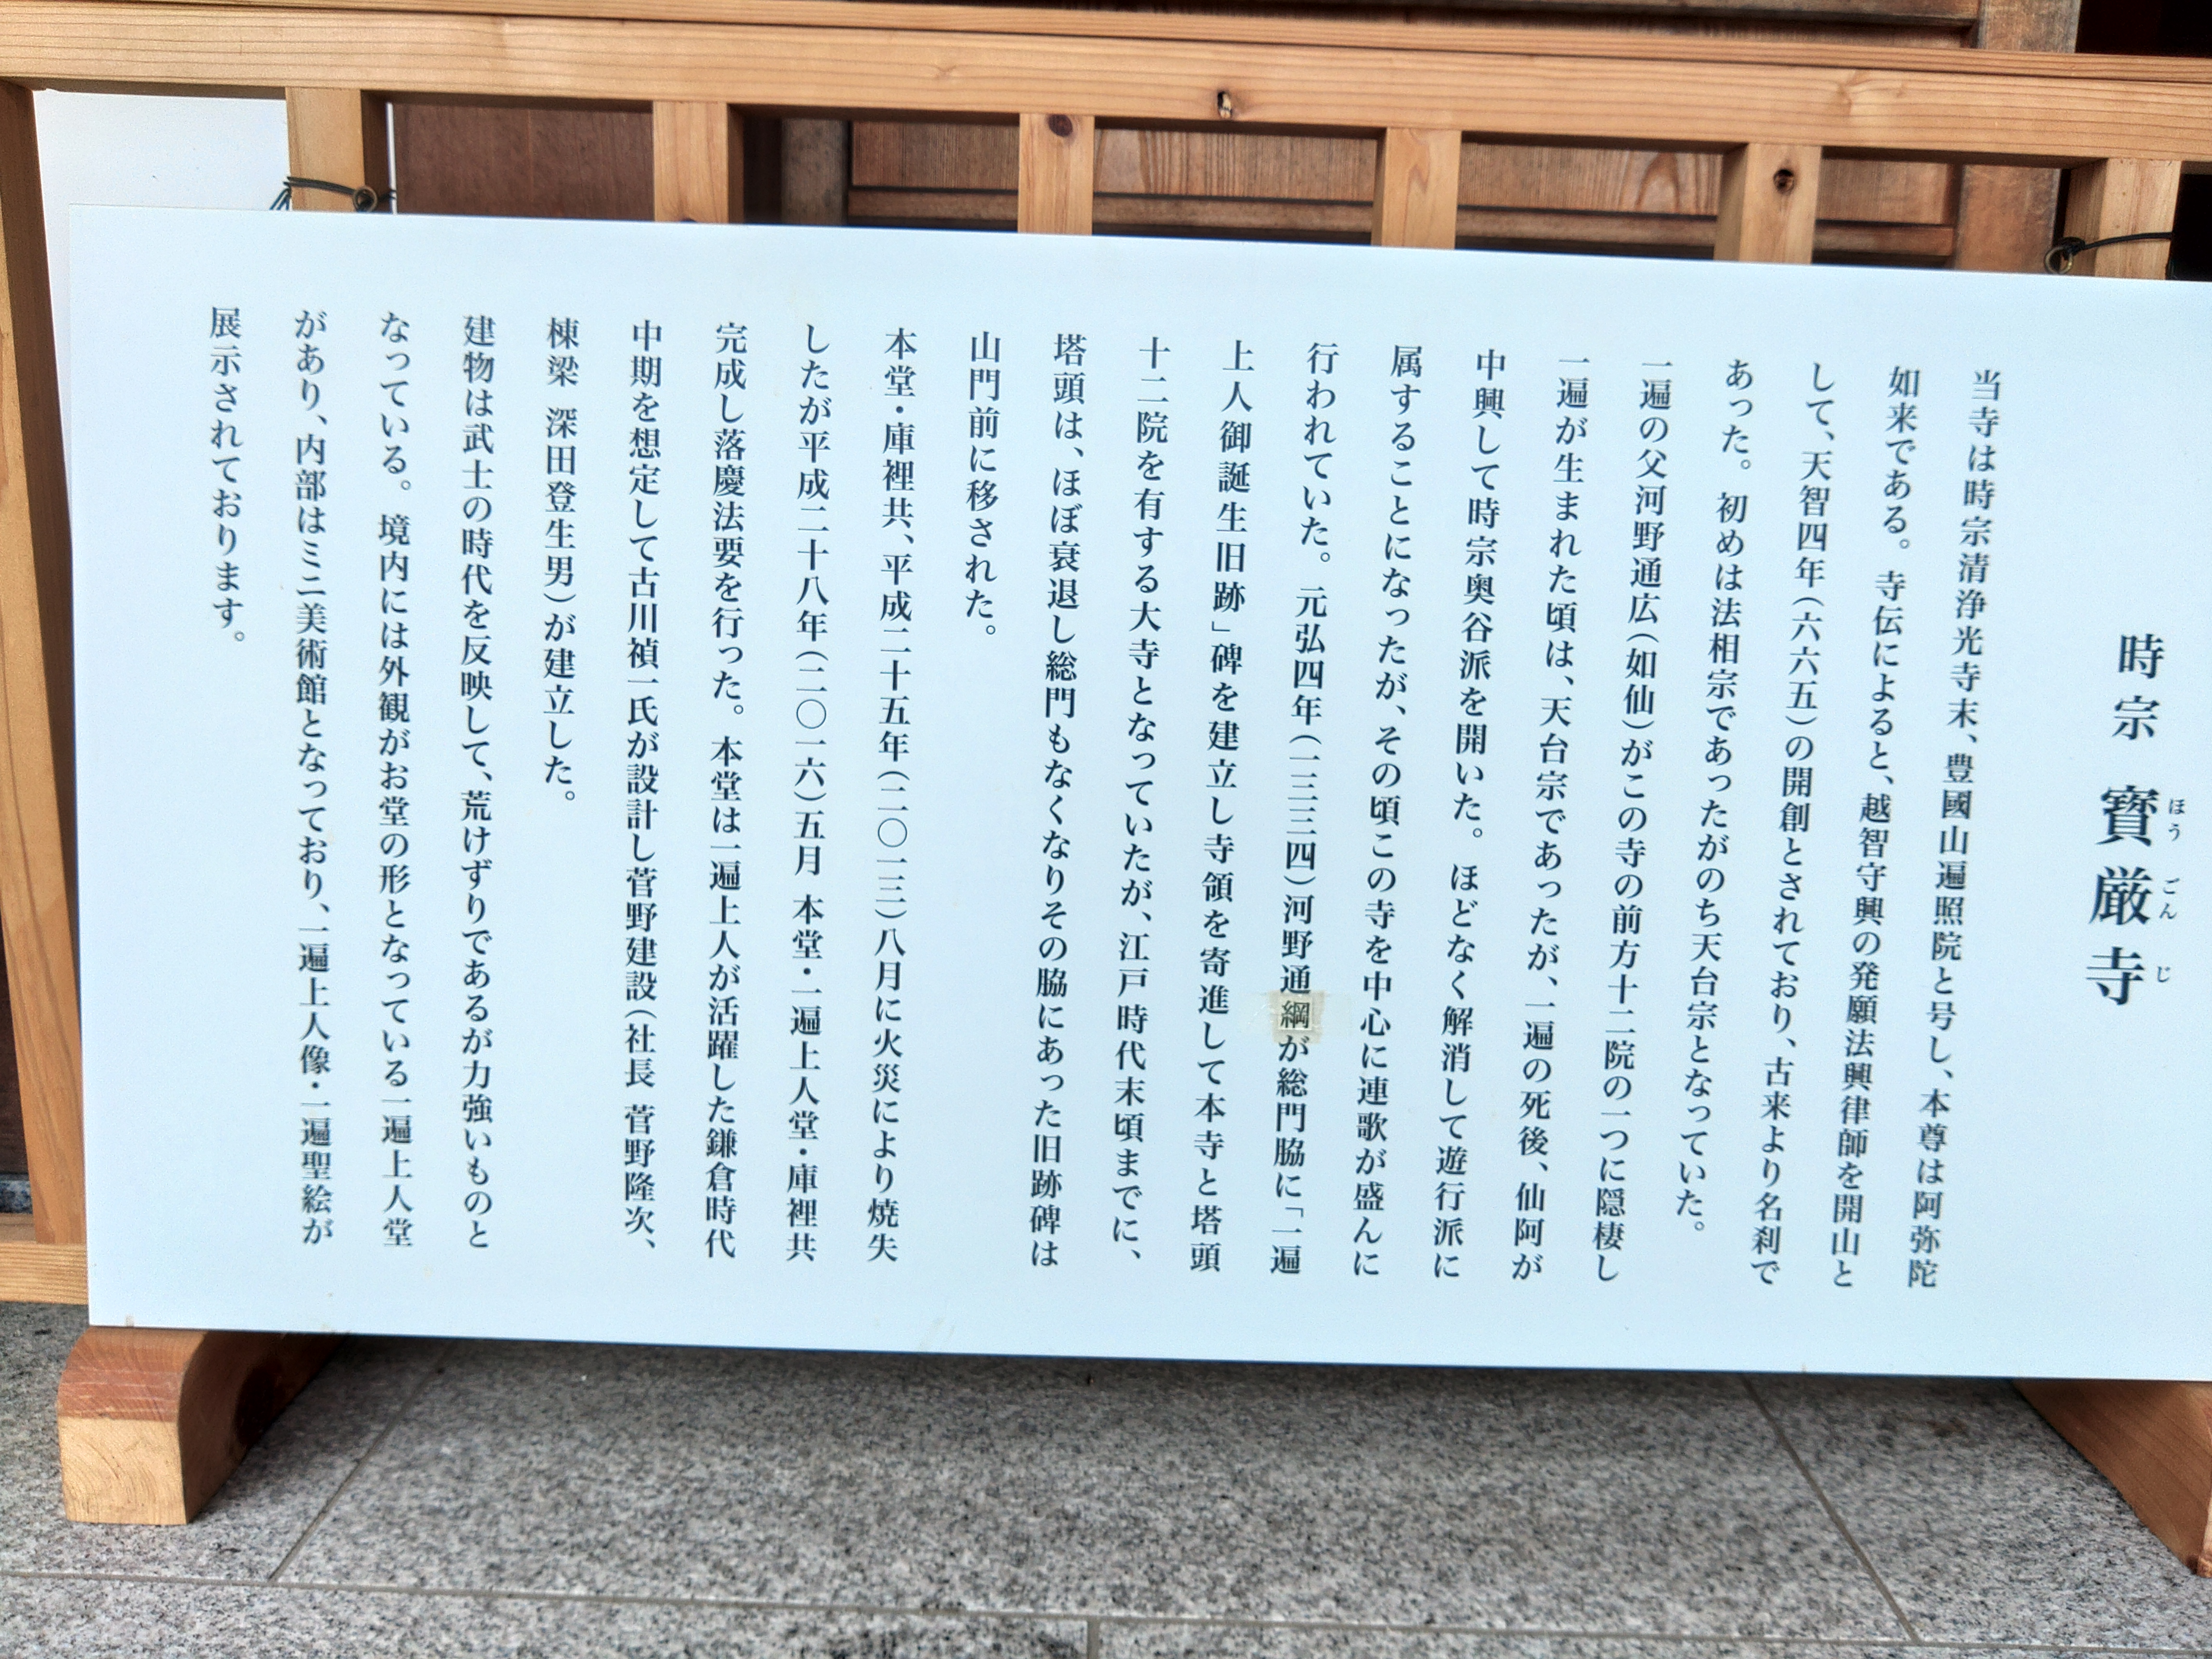 時宗 寳厳寺
ほう ごん じ
当寺は時宗清浄光寺末、豊國山遍照院と号し、本尊は阿弥陀
如来である。寺伝によると、越智守興の発願法興律師を開山と
して、天智四年（六六五）の開創とされており、古来より名刹で
あった。初めは法相宗であったがのち天台宗となっていた。
一遍の父河野通広（如仙）がこの寺の前方十二院の一つに隠棲し
一遍が生まれた頃は、天台宗であったが、一遍の死後、仙阿が
中興して時宗奥谷派を開いた。ほどなく解消して遊行派に
属することになったが、その頃この寺を中心に連歌が盛んに
行われていた。元弘四年（一三三四）河野通綱が総門脇に「一遍
上人御誕生旧跡」碑を建立し寺領を寄進して本寺と塔頭
十二院を有する大寺となっていたが、江戸時代末頃までに、
塔頭は、ほぼ衰退し総門もなくなりその脇にあった旧跡碑は
山門前に移された。
本堂・庫裡共、平成二十五年（二〇一三）八月に火災により焼失
したが平成二十八年（二〇一六）五月 本堂・一遍上人堂・庫裡共
完成し落慶法要を行った。本堂は一遍上人が活躍した鎌倉時代
中期を想定して古川禎一氏が設計し菅野建設（社長 菅野隆次、
棟梁 深田登生男）が建立した。
建物は武士の時代を反映して、荒けずりであるが力強いものと
なっている。境内には外観がお堂の形となっている一遍上人堂
があり、内部はミニ美術館となっており、一遍上人像・一遍聖絵が
展示されております。